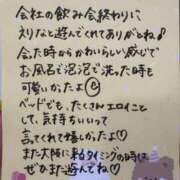 会社の飲み会終わりに
えりなと遊んでくれてありがとね
会った時からかわいらしい感じで
お風呂で泡泡で洗った時も
可愛いかったよ
ベッドでも、たくさんエロイこと
して、気持ちいいって
言ってくれて嬉しかったよ♡
また大阪に来るタイミングの時は
ぜひまた遊んでね